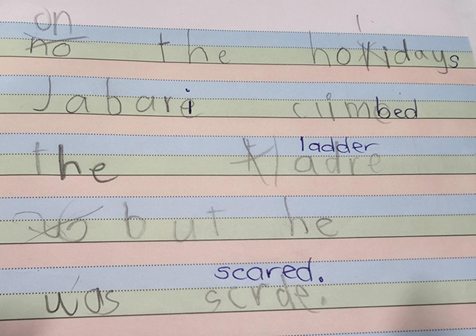 on
no the holidays
Jabari climbed
ladder
the ladre
but he
scared.
was scrde.